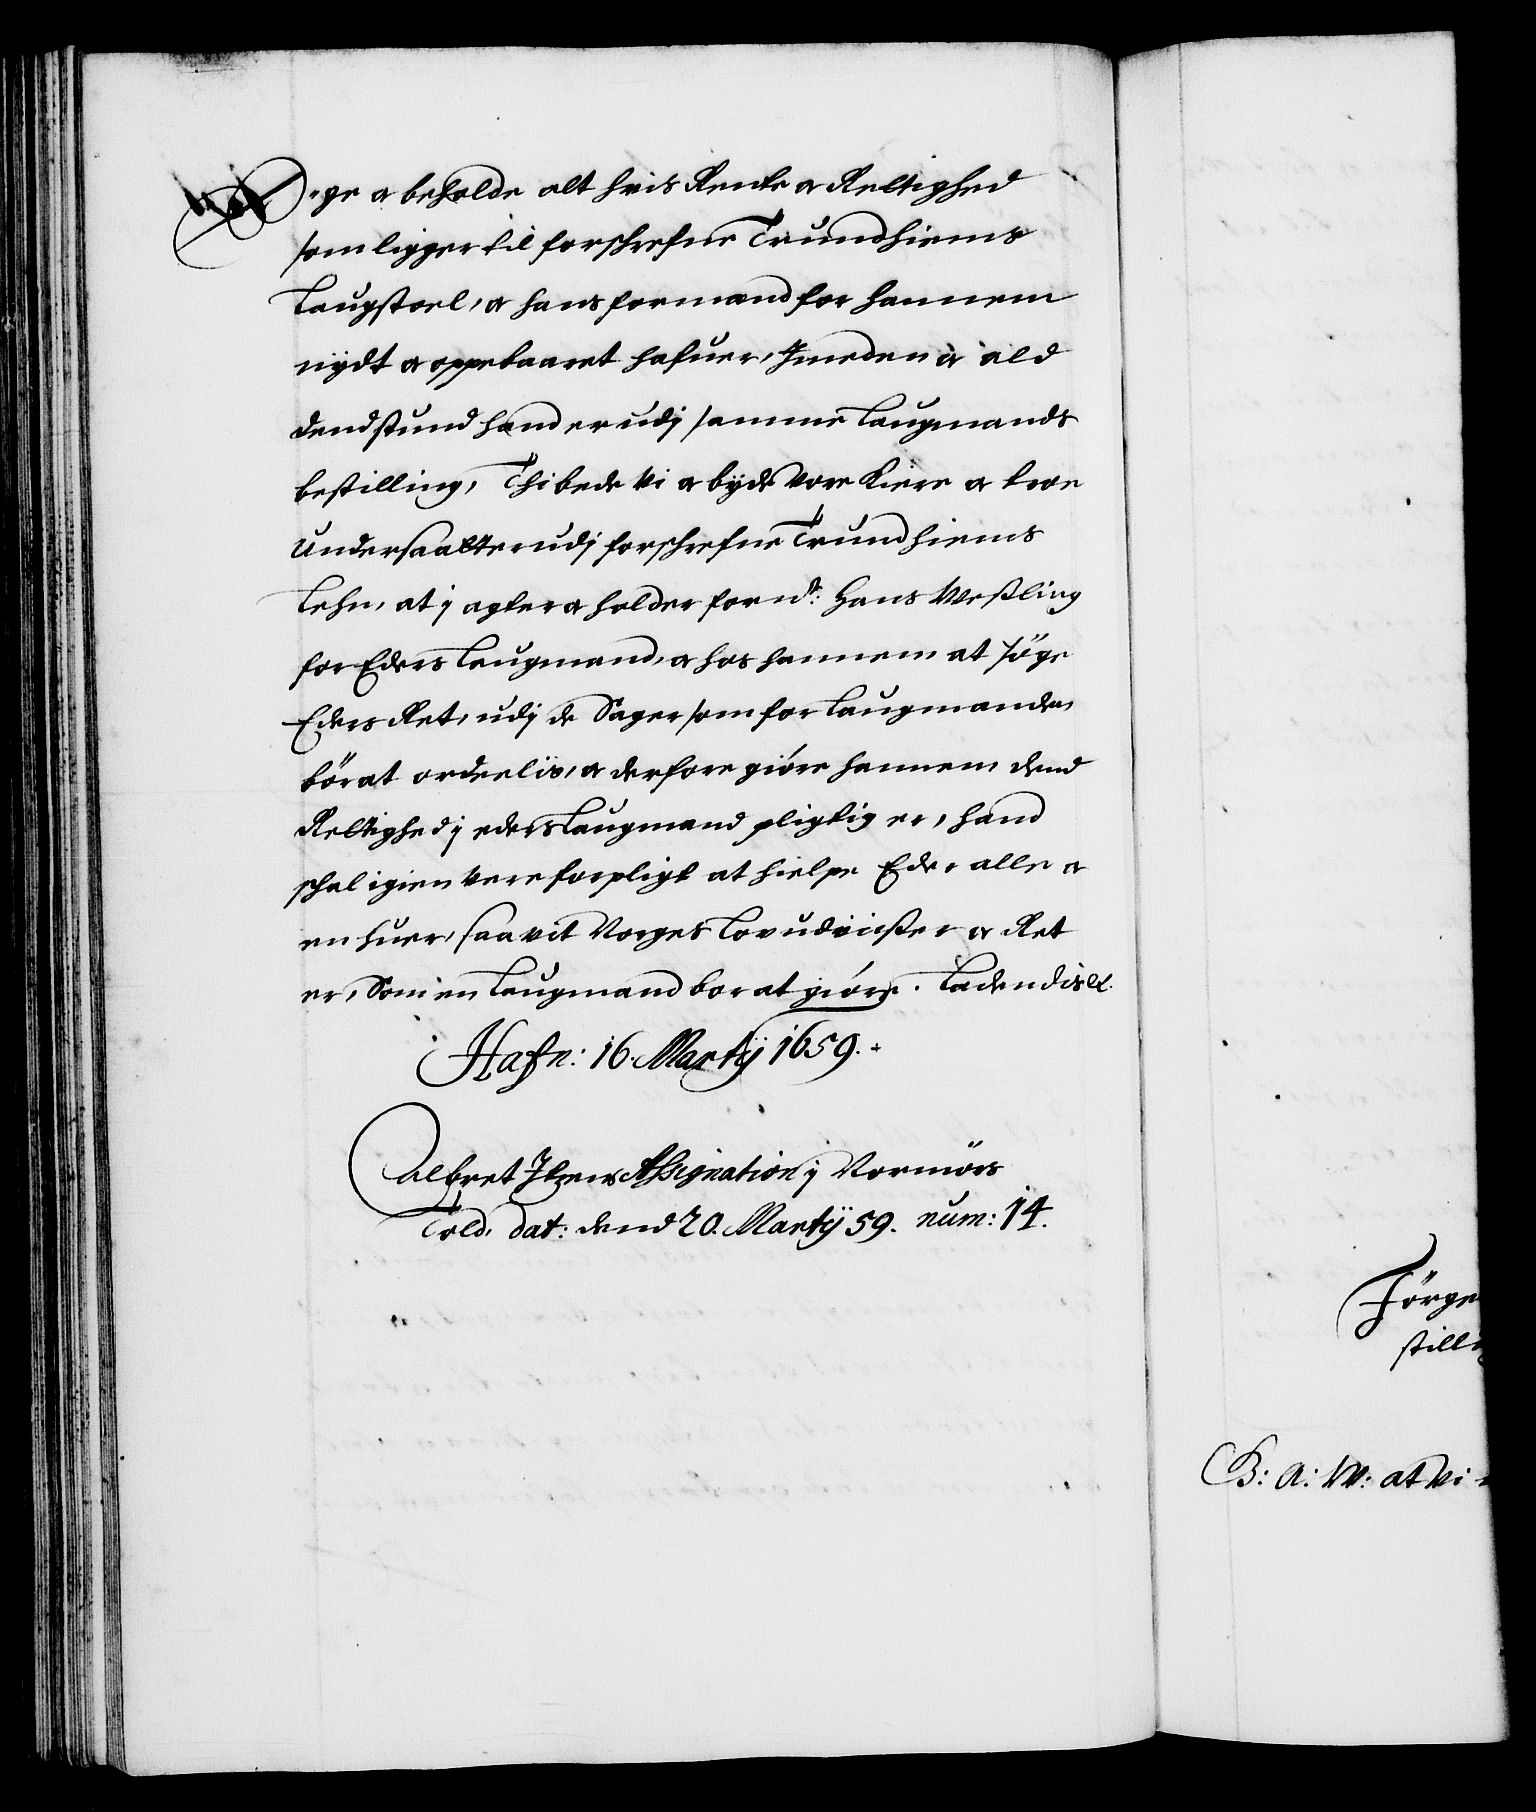 -ge oc beholde alt hvis Rente oc Rettighed
som ligger til forschrefne Trundhiems
Laugstoel, oc hans formand for hannem
nydt oc oppebaaret hafuer, Imeden oc ald
dend stund hand er udj samme Laugmands
bestilling, Thi bede Vi oc byde Vore Kiere oc troe
Undersaatter udj forschrefne Trundhiems
Lehn, at j agter oc holder fornd: Hans Weßling
for Eders Laugmand, oc hos hannem at söge
Eders Ret, udj de Sager som for Laugmanden
bör at ordeelis, oc derfore giöre hannem dend
Rettighed j eders Laugmand pligtig er, hand
schal igien vere forpligt at hielpe Eder alle oc
en huer, saavit Norges Lov udviißer oc Ret
er, Som en Laugmand bör at giöre. Ladendis etc.
Hafn: 16. Martij 1659.
Albret Itzens Assignation j Normörs
Told, dat: dend 20. Martij 59. num: 14.
Jörge
still
B: A: W: at Vi